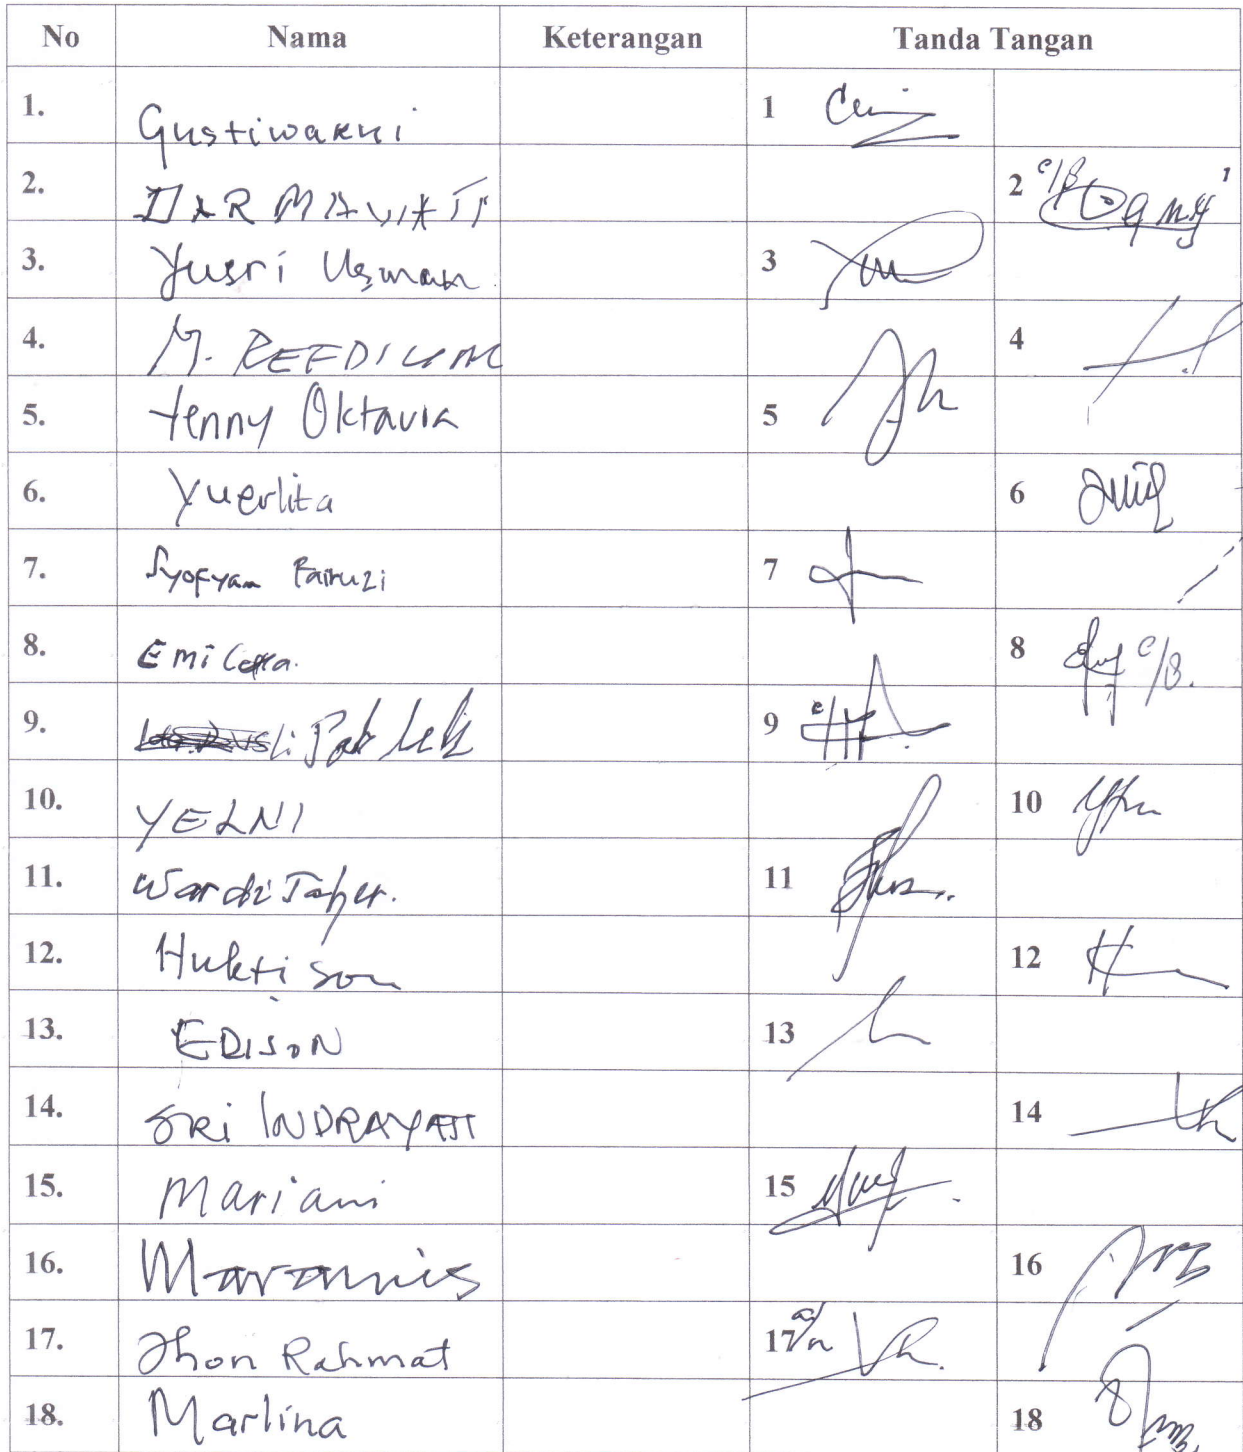 No Nama Keterangan Tanda Tangan
1. Gustiwarni 1
2. 2 c/B
3. Yusri Usman 3
4. M. REFDIUM 4
5. Yenny Oktavia 5
6. Yuerlita 6
7. Syofyan Fairuzi 7
8. Emi 8 c/B.
9. 9
10. YELNI 10
11. Wardi Taher. 11
12. Huktison 12
13. EDISON 13
14. SRI INDRAYATI 14
15. Mariani 15
16. Maramis 16
17. Jhon Rahmat 17 a/n
18. Marlina 18